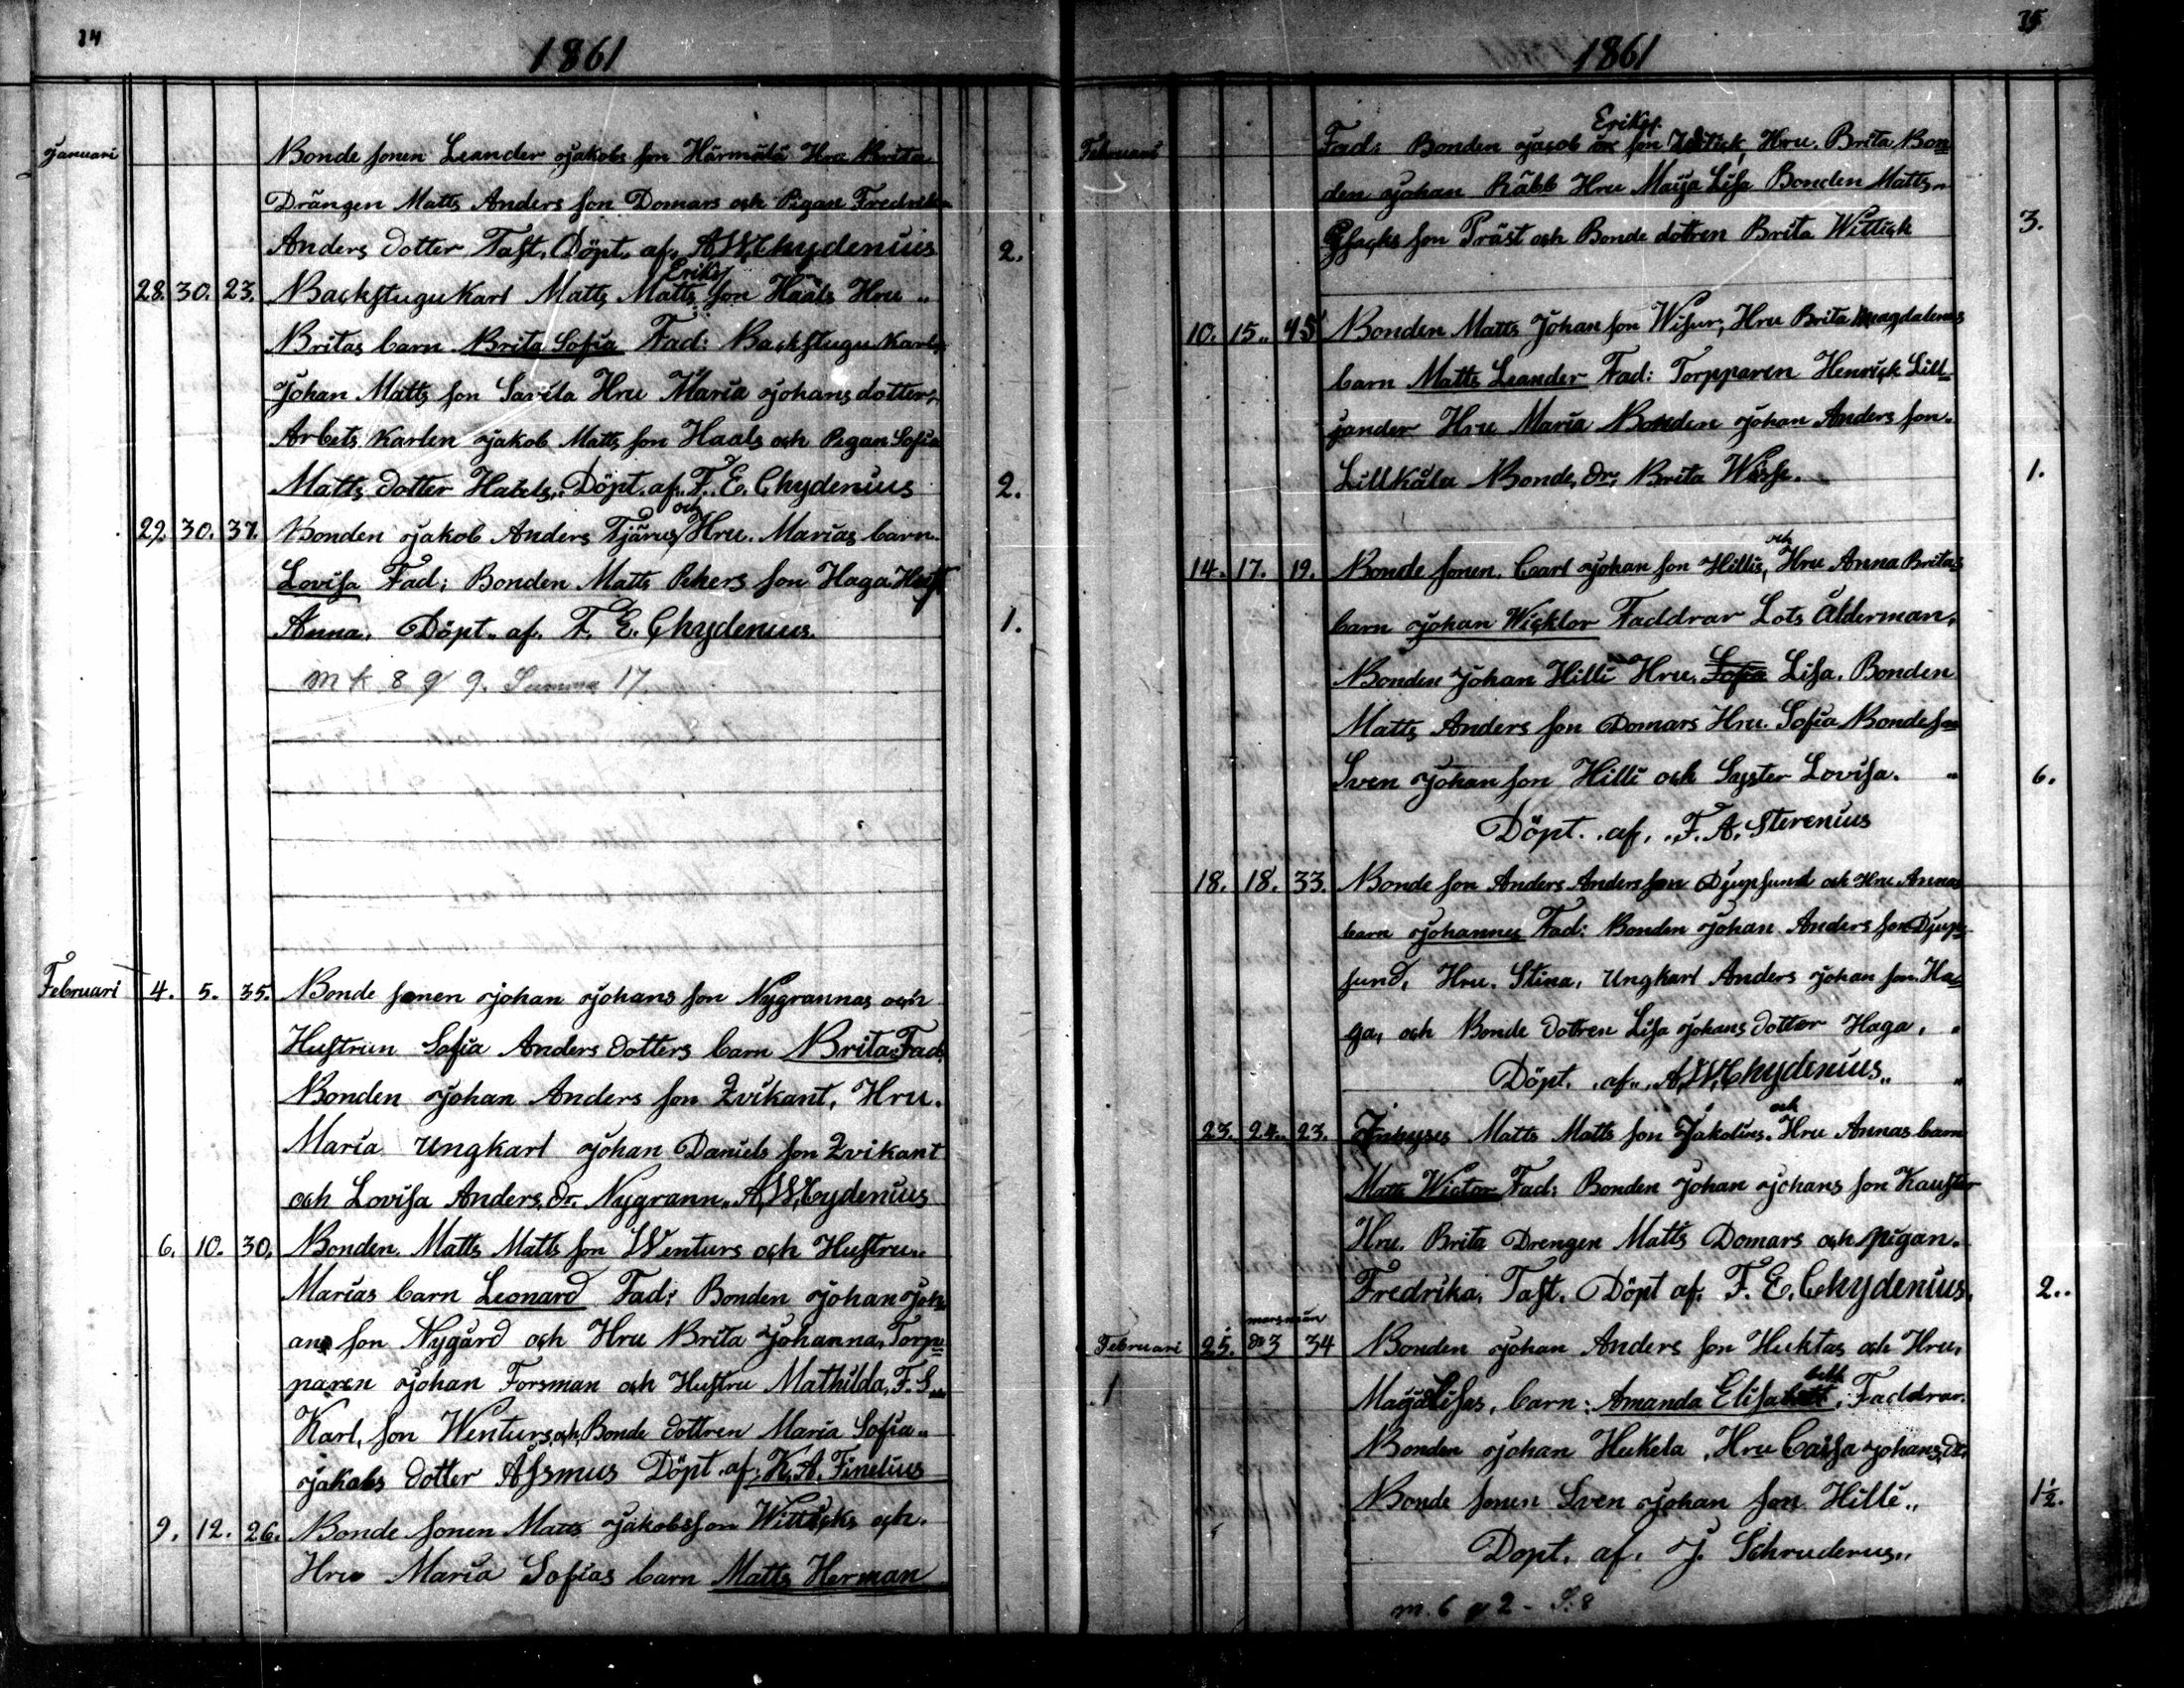 34
1861
Januari
Bonde sonen Leander Jakobs son Härmälä Hru Brita
Drängen Matts Anders son Domars och Pigan Fredrika
Anders dotter Tast. Döpt. af. A.W.Chydenius
2.
Eriks
28. 30. 23. Backstugu Karl Matts Matts son Haals Hru
Britas barn Brita Sofia Fad: Backstugu Karl
Johan Matts son Savila Hru Maria Johans dotter
Arbets Karlen Jakob Matts son Haals och Pigan Sofia
Matts dotter Döpt. af. F. E. Chydenius
2.
och
29. 30. 37. Bonden Jakob Anders Tjärus Hru. Marias barn
Lovisa Fad: Bonden Matts son Haga
Anna. Döpt. af. F. E. Chydenius.
1.
m k 8 q 9. Summa 17
Februari 4. 5. 35. Bonde sonen Johan Johans son Nygrannas och
Hustrun Sofia Anders dotters barn Brita Fad.
Bonden Johan Anders son Zvikant, Hru.
Maria Ungkarl Johan Daniels son Zvikant
och Lovisa Anders. dr. Nygrann. A.W.Cydenius
6. 10. 30. Bonden. Matts Matts son Wenturs och Hustru
Marias barn Leonard Fad: Bonden Johan Joh
ans son Nygård och Hru Brita Johanna, Torp
paren Johan Forsman och Hustru Mathilda, F. S.
Karl, son Wenturs och Bonde dottren Maria Sofia
Jakobs dotter Assmus Döpt. af. K. A. Finelius
9. 12. 26. Bonde sonen Matts Jakobsson Witticks och.
Hru Maria Sofias barn Matts Herman
35
1861
Februari
Eriks
Fad: Bonden Jacob son Hru. Brita Bon
den Johan Räbb Hru Maija Lisa Bonden Matts
son Präst och Bonde dottren Brita Wittick
3.
10. 15. 45 Bonden Matts Johan son Wisur, Hru Brita Magdalenas
barn Matts Leander Fad: Torpparen Henrick Lill
jander Hru Maria Bonden Johan Anders son
Lillkåla Bonde, dr, Brita
1.
och
14. 17. 19. Bonde sonen. Carl Johan son Hillis, Hru Anna Britas
barn Johan Wicktor Faddrar Lots Ålderman,
Bonden Johan Hilli Hru, Sofia Lisa. Bonden
Matts Anders son Domars Hru. Sofia Bonde son
Sven Johan son Hilli och Syster Lovisa.
6.
Döpt. af. F. A. Sterenius
18. 18. 33. Bonde son Anders Anders son Djupsund och Hru Annas
barn Johannes Fad: Bonden Johan Anders son Djup
sund, Hru. Stina, Ungkarl Anders Johan son. Ha
ga, och Bonde dottren Lisa Johans dotter Haga.
Döpt. af. A.W.Chydenius
och
23. 24. 23. Inhyses Matts Matts son Jakolins, Hru Annas barn
Matts Wictor Fad: Bonden Johan Johans son Kauster
Hru. Brita Drengen Matts Domars och pigan
Fredrika, Tast. Döpt af. F. E. Chydenius.
2.
mars
Februari 25. 3 34 Bonden Johan Anders son Huktas och Hru,
beth
1
Maija Lisas, barn: Amanda Elisabett, Faddrar.
Bonden Johan Hukela, Hru Caisa Johans. dr.
Bonde sonen Sven Johan son Hilli
1½.
Dopt. af. J. Schruderus
m. 6 q 2 - S: 8